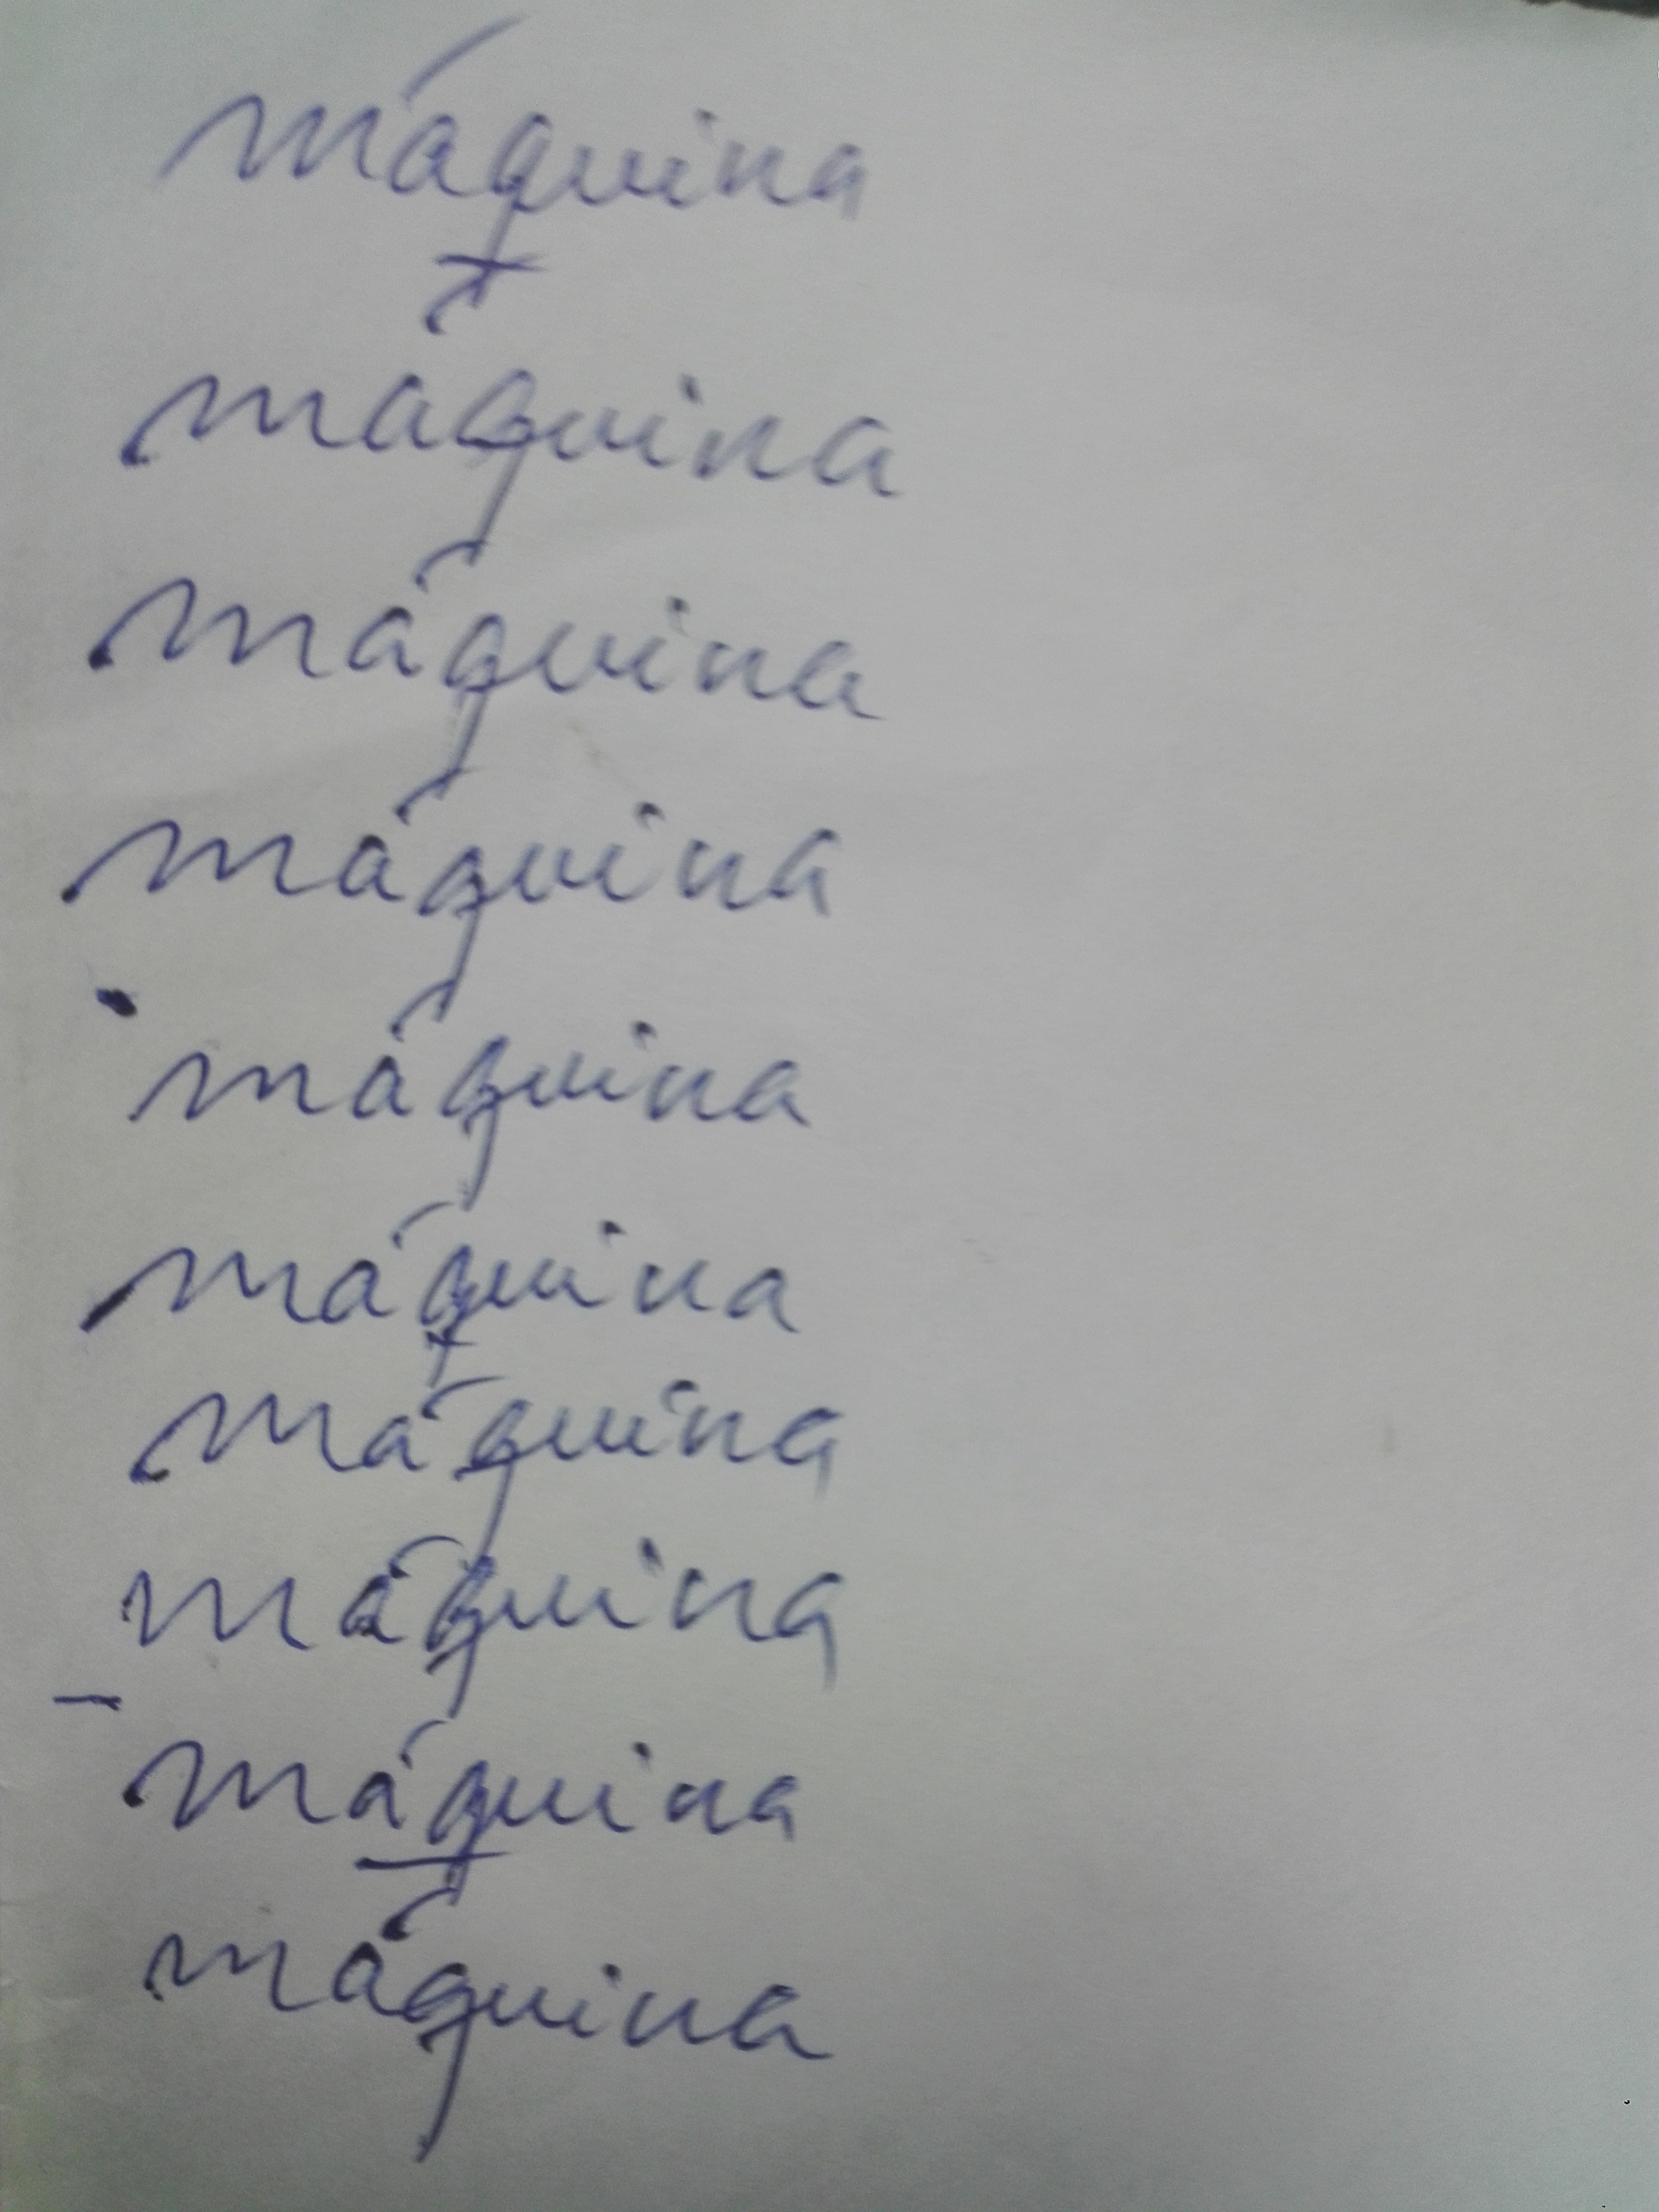 máquina
máquina
máquina
máquina
máquina
máquina
máquina
máquina
máquina
máquina